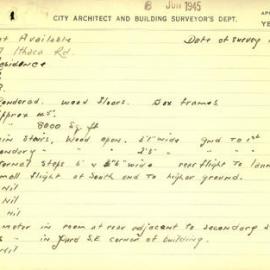 6 JUN 1945
CITY ARCHITECT AND BUILDING SURVEYOR'S DEPT.
AP
YE
Not Available Date of survey
7 Ithaca Rd.
Residence
2
Rendered. Wood floors. Box frames
Approx 25'
" 8000 sq. ft
Main Stairs, Wood open, 5'1" wide Gnd to 1st
Secondary " " 2'5" "
External steps 6' & 5'6" wide rear flight to lann
Small flight at South end to higher ground.
Nil
Nil
Nil
motor in room at rear adjacent to secondary s
" in yard S.E corner of building.
Nil
Nil